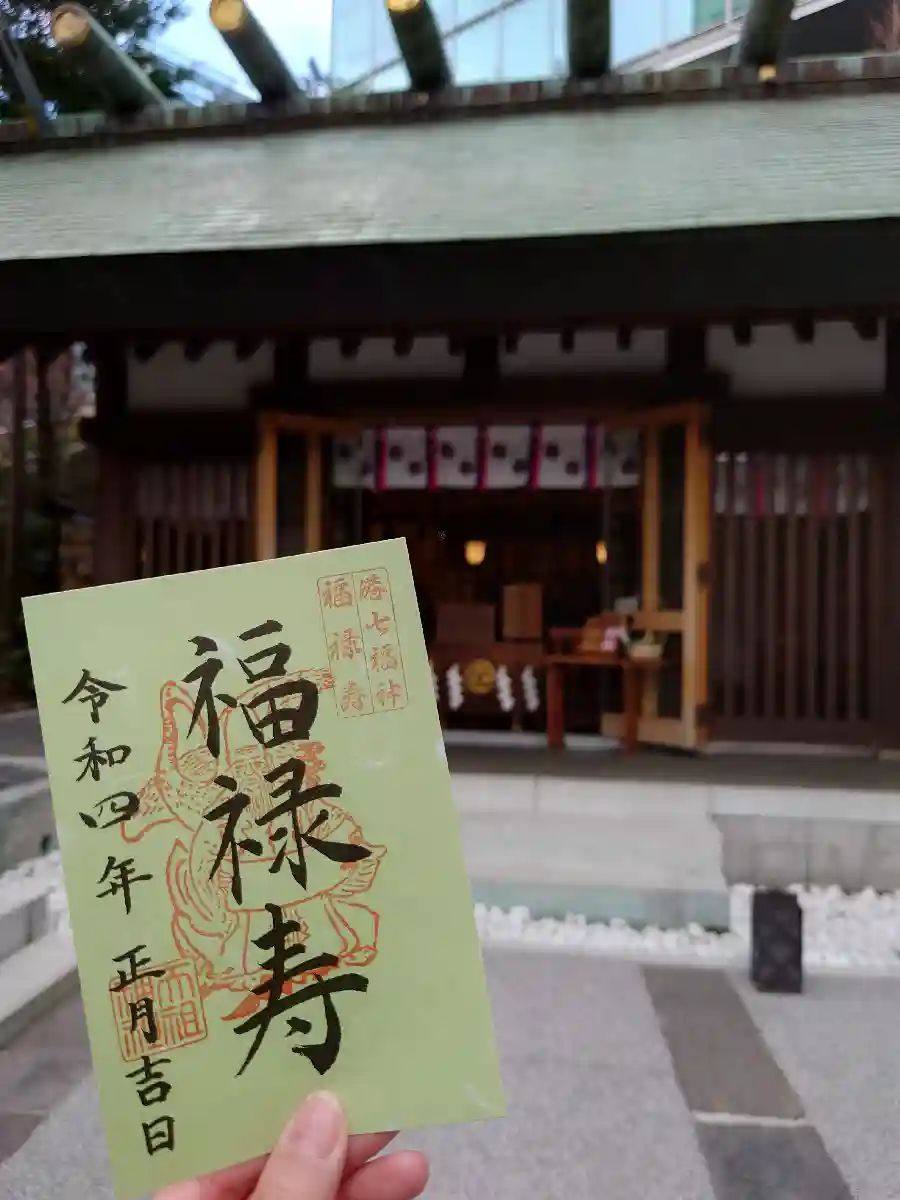 港七福神
福禄寿
福禄寿
令和四年 正月吉日